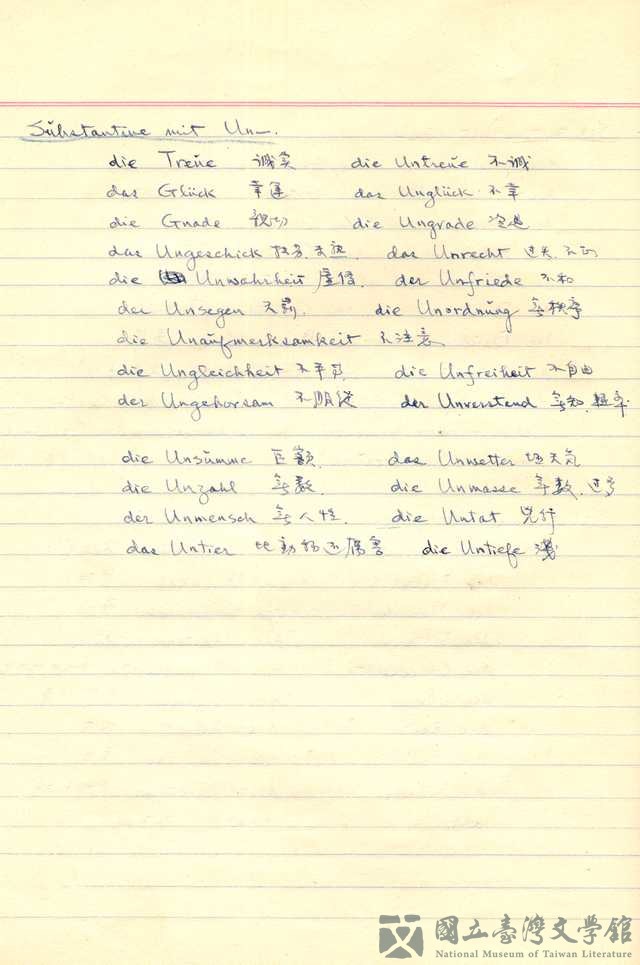 Substantive mit Un—.
die Treue 誠实 die Untreue 不誠
das Glück 幸運 das Unglück 不幸
die Gnade 親切 die Ungnade
das Ungeschick das Unrecht 过失.不正
die Unwahrheit 虛偽. der Unfriede 不和
der Unsegen 天罰. die Unordnung 無秩序
die Unaufmerksamkeit 不注意
die Ungleichheit 不平等 die Unfreiheit 不自由
der Ungehorsam 不服従 der Unverstand 無知.軽率
die Unsumme 巨額. das Unwetter 壞天気
die Unzahl 無数. die Unmasse 無数.过多
der Unmensch 無人性. die Untat 兇行
das Untier 比動物还厲害 die Untiefe 淺
國立臺灣文學館
National Museum of Taiwan Literature